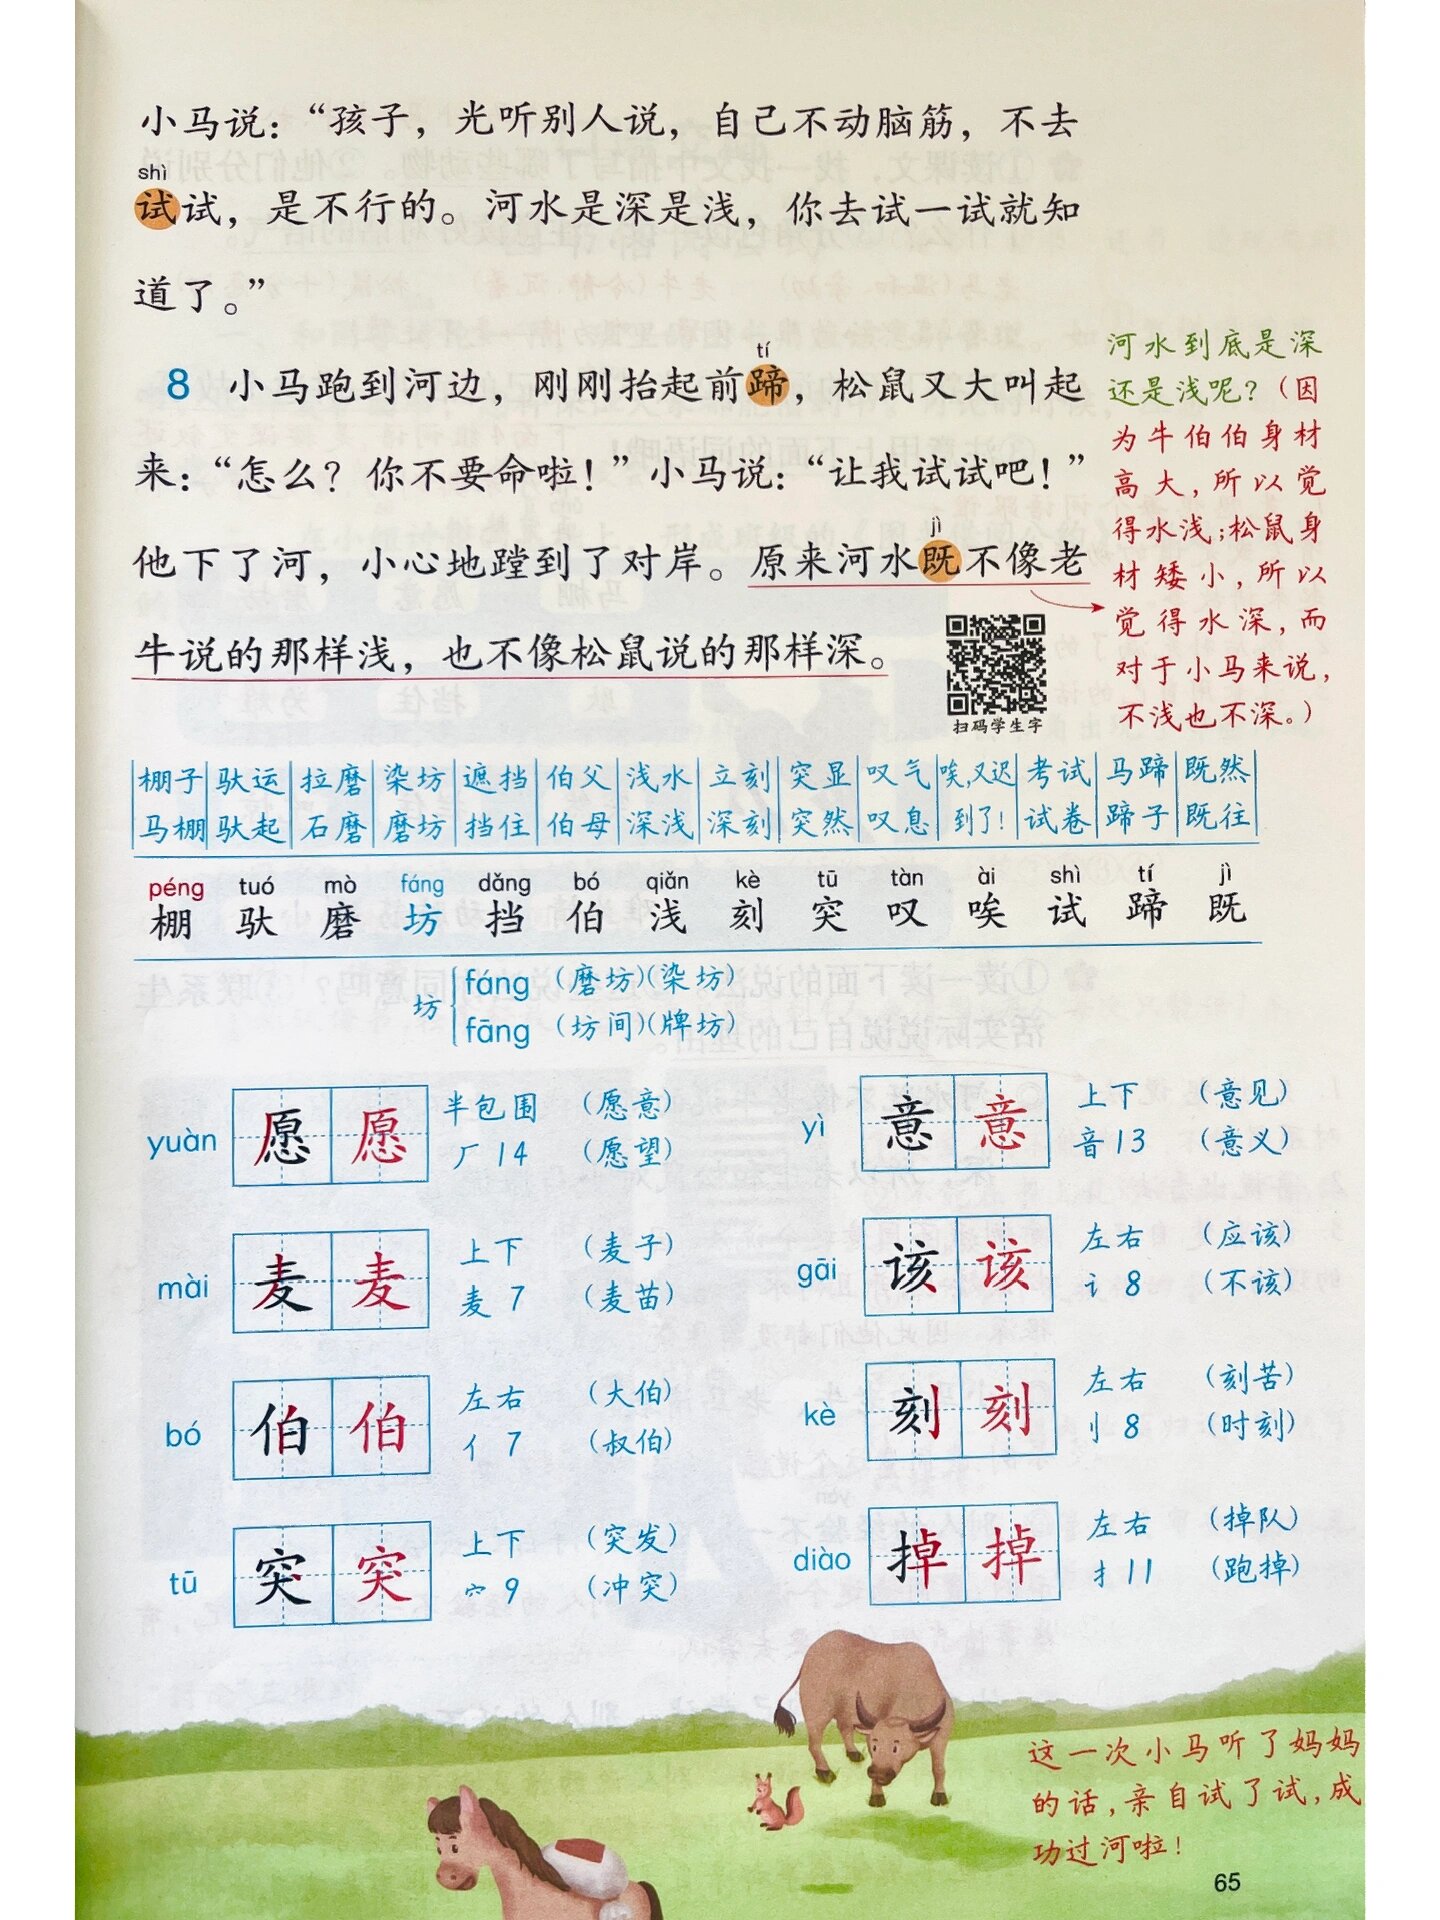 小马说：“孩子，光听别人说，自己不动脑筋，不去
shì
试试，是不行的。河水是深是浅，你去试一试就知
道了。”
tí
8 小马跑到河边，刚刚抬起前蹄，松鼠又大叫起
来：“怎么？你不要命啦！”小马说：“让我试试吧！”
jì
他下了河，小心地蹚到了对岸。原来河水既不像老
牛说的那样浅，也不像松鼠说的那样深。
河水到底是深
还是浅呢？（因
为牛伯伯身材
高大，所以觉
得水浅；松鼠身
材矮小，所以
觉得水深，而
对于小马来说，
不浅也不深。）
扫码学生字
棚子 驮运 拉磨 染坊 遮挡 伯父 浅水 立刻 突显 叹气 唉，又迟 考试 马蹄 既然
马棚 驮起 石磨 磨坊 挡住 伯母 深浅 深刻 突然 叹息 到了！ 试卷 蹄子 既往
péng tuó mò fáng dǎng bó qiǎn kè tū tàn ài shì tí jì
棚 驮 磨 坊 挡 伯 浅 刻 突 叹 唉 试 蹄 既
fáng （磨坊）（染坊）
坊
fāng （坊间）（牌坊）
yuàn 愿 愿 半包围 （愿意）
厂 14 （愿望）
yì 意 意 上下 （意见）
音 13 （意义）
mài 麦 麦 上下 （麦子）
麦 7 （麦苗）
gāi 该 该 左右 （应该）
讠 8 （不该）
bó 伯 伯 左右 （大伯）
亻 7 （叔伯）
kè 刻 刻 左右 （刻苦）
刂 8 （时刻）
tū 突 突 上下 （突发）
穴 9 （冲突）
diào 掉 掉 左右 （掉队）
扌 11 （跑掉）
这一次小马听了妈妈
的话，亲自试了试，成
功过河啦！
65